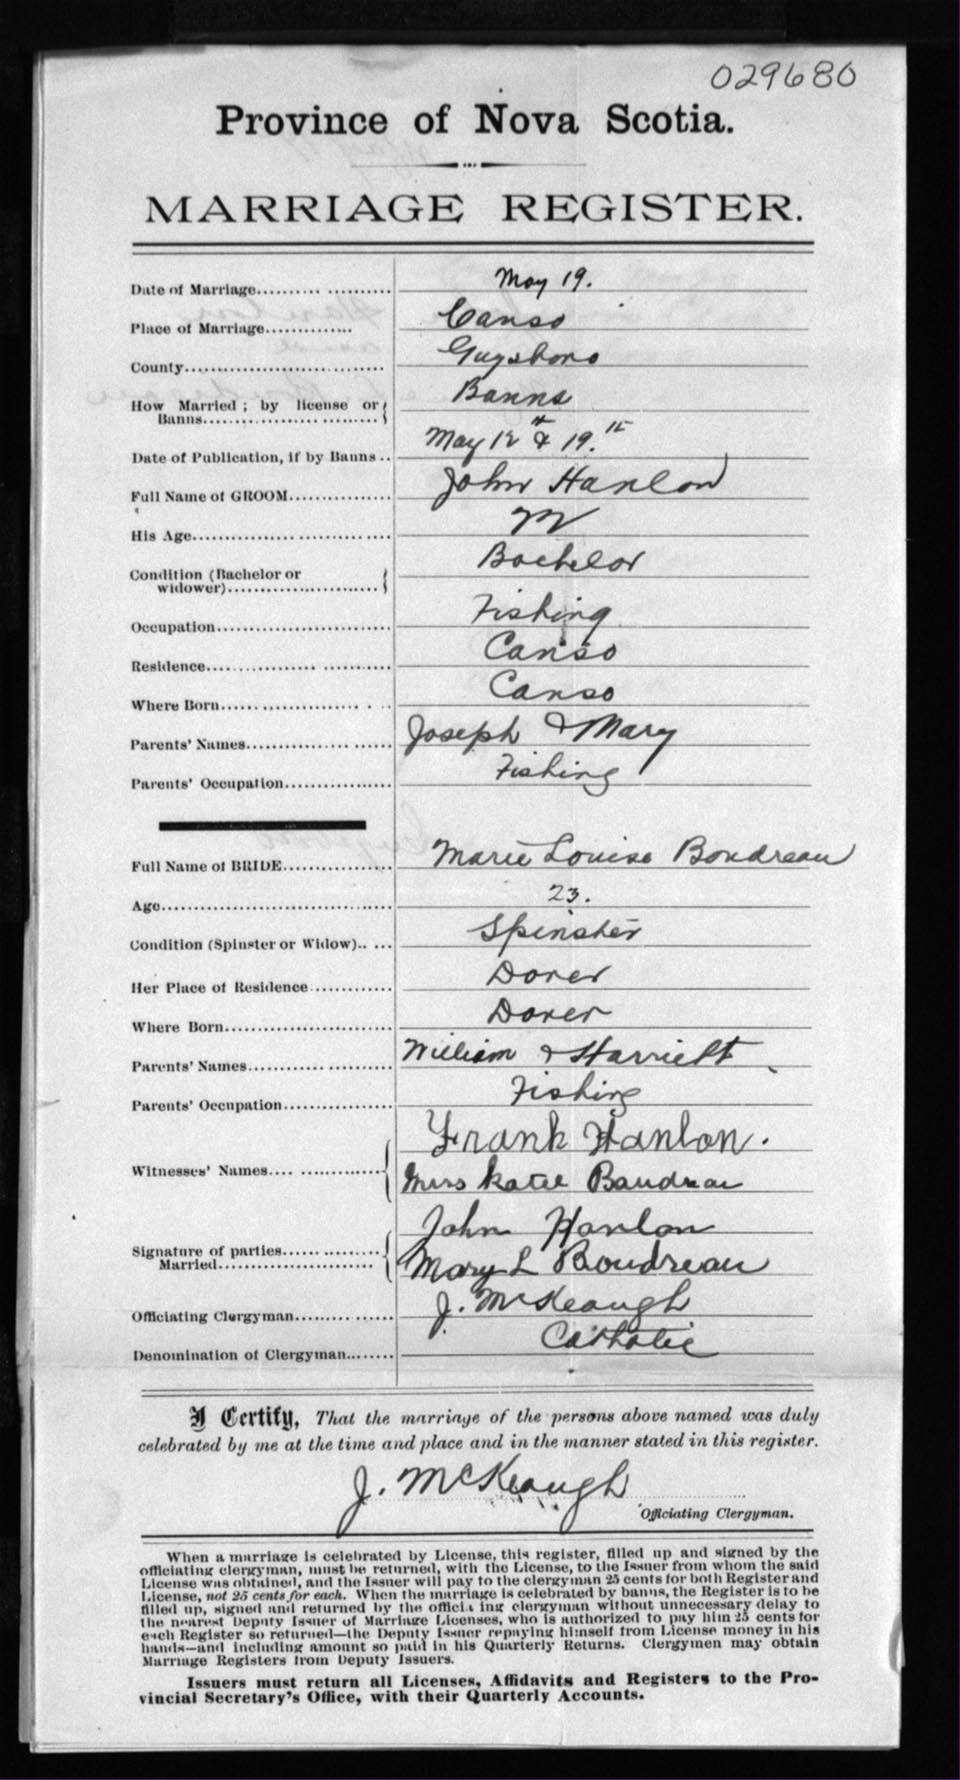 029680
Province of Nova Scotia.
MARRIAGE REGISTER.
Date of Marriage.......... .......... May 19.
Place of Marriage.............. Canso
County................................ Guysboro
How Married ; by license or
Banns............................ Banns
Date of Publication, if by Banns .. May 12th & 19.th
Full Name of GROOM................ John Hanlon
His Age................................
Condition (Bachelor or
widower)........................ Bachelor
Occupation............................ Fishing
Residence............................ Canso
Where Born........................ Canso
Parents' Names.................... Joseph & Mary
Parents' Occupation................ Fishing
Full Name of BRIDE................ Marie Louise Boudreau
Age.................................... 23.
Condition (Spinster or Widow).. ... Spinster
Her Place of Residence............ Dover
Where Born........................ Dover
Parents' Names.................... William & Harriett
Parents' Occupation................ Fishing
Frank Hanlon.
Witnesses' Names.... ..............
Miss Katie Baudrau
John Hanlon
Signature of parties..................
Married........................ Mary L Boudreau
Officiating Clergyman.............. J. McKeough
Denomination of Clergyman........ Catholic
I Certify, That the marriage of the persons above named was duly
celebrated by me at the time and place and in the manner stated in this register.
J. McKeough
Officiating Clergyman.
When a marriage is celebrated by License, this register, filled up and signed by the
officiating clergyman, must be returned, with the License, to the Issuer from whom the said
License was obtained, and the Issuer will pay to the clergyman 25 cents for both Register and
License, not 25 cents for each. When the marriage is celebrated by banns, the Register is to be
filled up, signed and returned by the officiating clergyman without unnecessary delay to
the nearest Deputy Issuer of Marriage Licenses, who is authorized to pay him 25 cents for
each Register so returned—the Deputy Issuer repaying himself from License money in his
hands—and including amount so paid in his Quarterly Returns. Clergymen may obtain
Marriage Registers from Deputy Issuers.
Issuers must return all Licenses, Affidavits and Registers to the Pro-
vincial Secretary's Office, with their Quarterly Accounts.